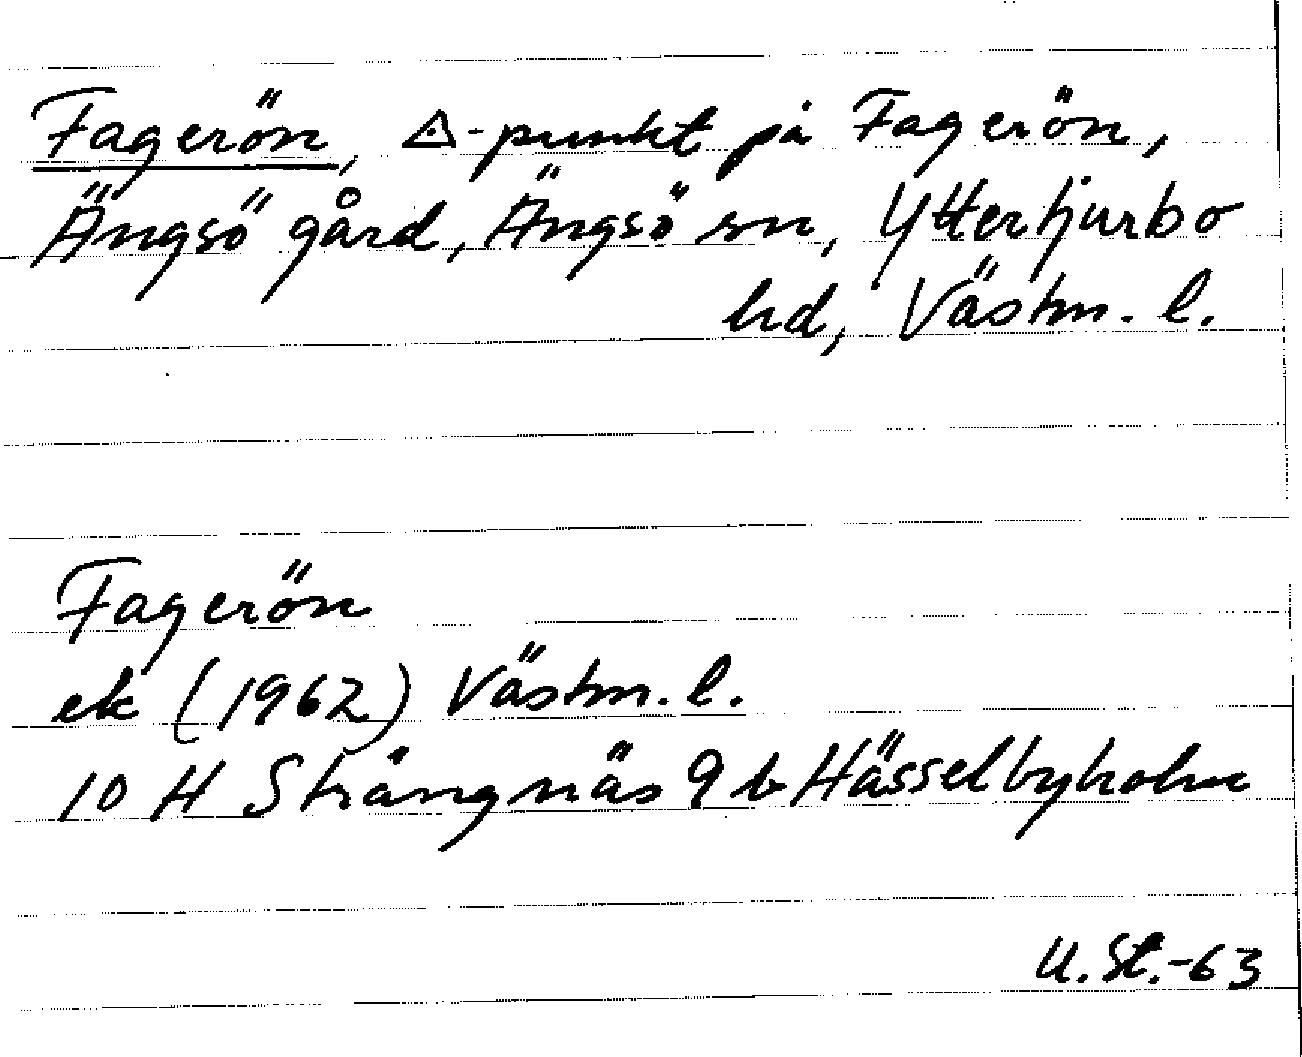 Fagerön, △-punkt på Fagerön,
Ängsö gård, Ängsö sn, Yttertjurbo
hd, Västm. l.
Fagerön
ek (1962) Västm. l.
10 H Strängnäs 9 b Hässelbyholm
U. St.-63